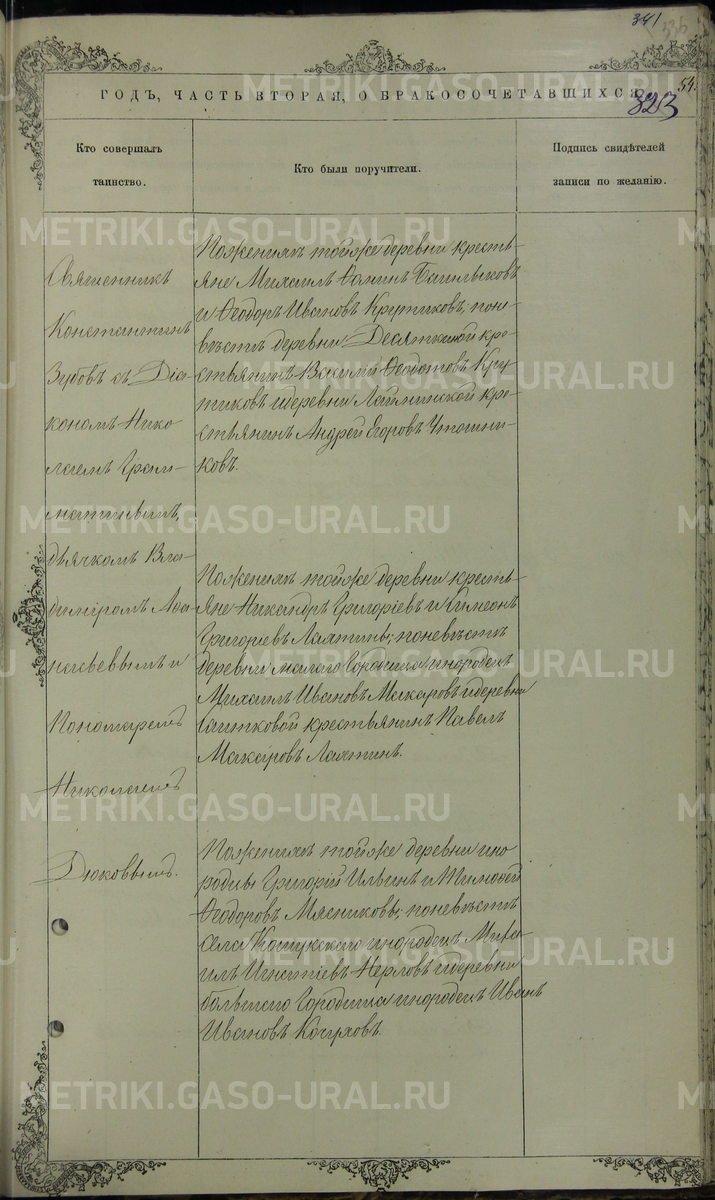 341
54.
ГОДЪ, ЧАСТЬ ВТОРАЯ, О БРАКОСОЧЕТАВШИХСЯ.
323
Кто совершалъ
таинство.
Кто были поручители.
Подпись свидѣтелей
записи по желанію.
Священникъ
Константинъ
Зубовъ съ Діа-
кономъ Нико
лаемъ
дьячкомъ Вла-
диміромъ
и
Пономаремъ
Николаемъ
Дюковымъ.
По женихѣ той же деревни кресть
яне Михаилъ
и Ѳеодоръ Ивановъ Крутиковъ, поне
вѣстѣ деревни Десяткиной кре
стьянинъ Василій Ѳедотовъ Кру
тиковъ и деревни кре
стьянинъ Андрей Егоровъ
ковъ.
По женихѣ той же деревни кресть
яне Никандръ Григоріевъ и Симеонъ
Григоріевъ Лаптины; по невѣстѣ
деревни малаго Городища инородецъ
Михаилъ Ивановъ Макаровъ и деревни
крестьянинъ Павелъ
Макаровъ Лаптинъ.
По женихѣ той же деревни ино
родцы Григорій Ильинъ и Тимоѳей
Ѳеодоровъ Мясниковы; по невѣстѣ
села Кошукскаго инородецъ Миха
илъ Игнатіевъ и деревни
большаго Городища инородецъ Иванъ
Ивановъ
METRIKI.GASO-URAL.RU